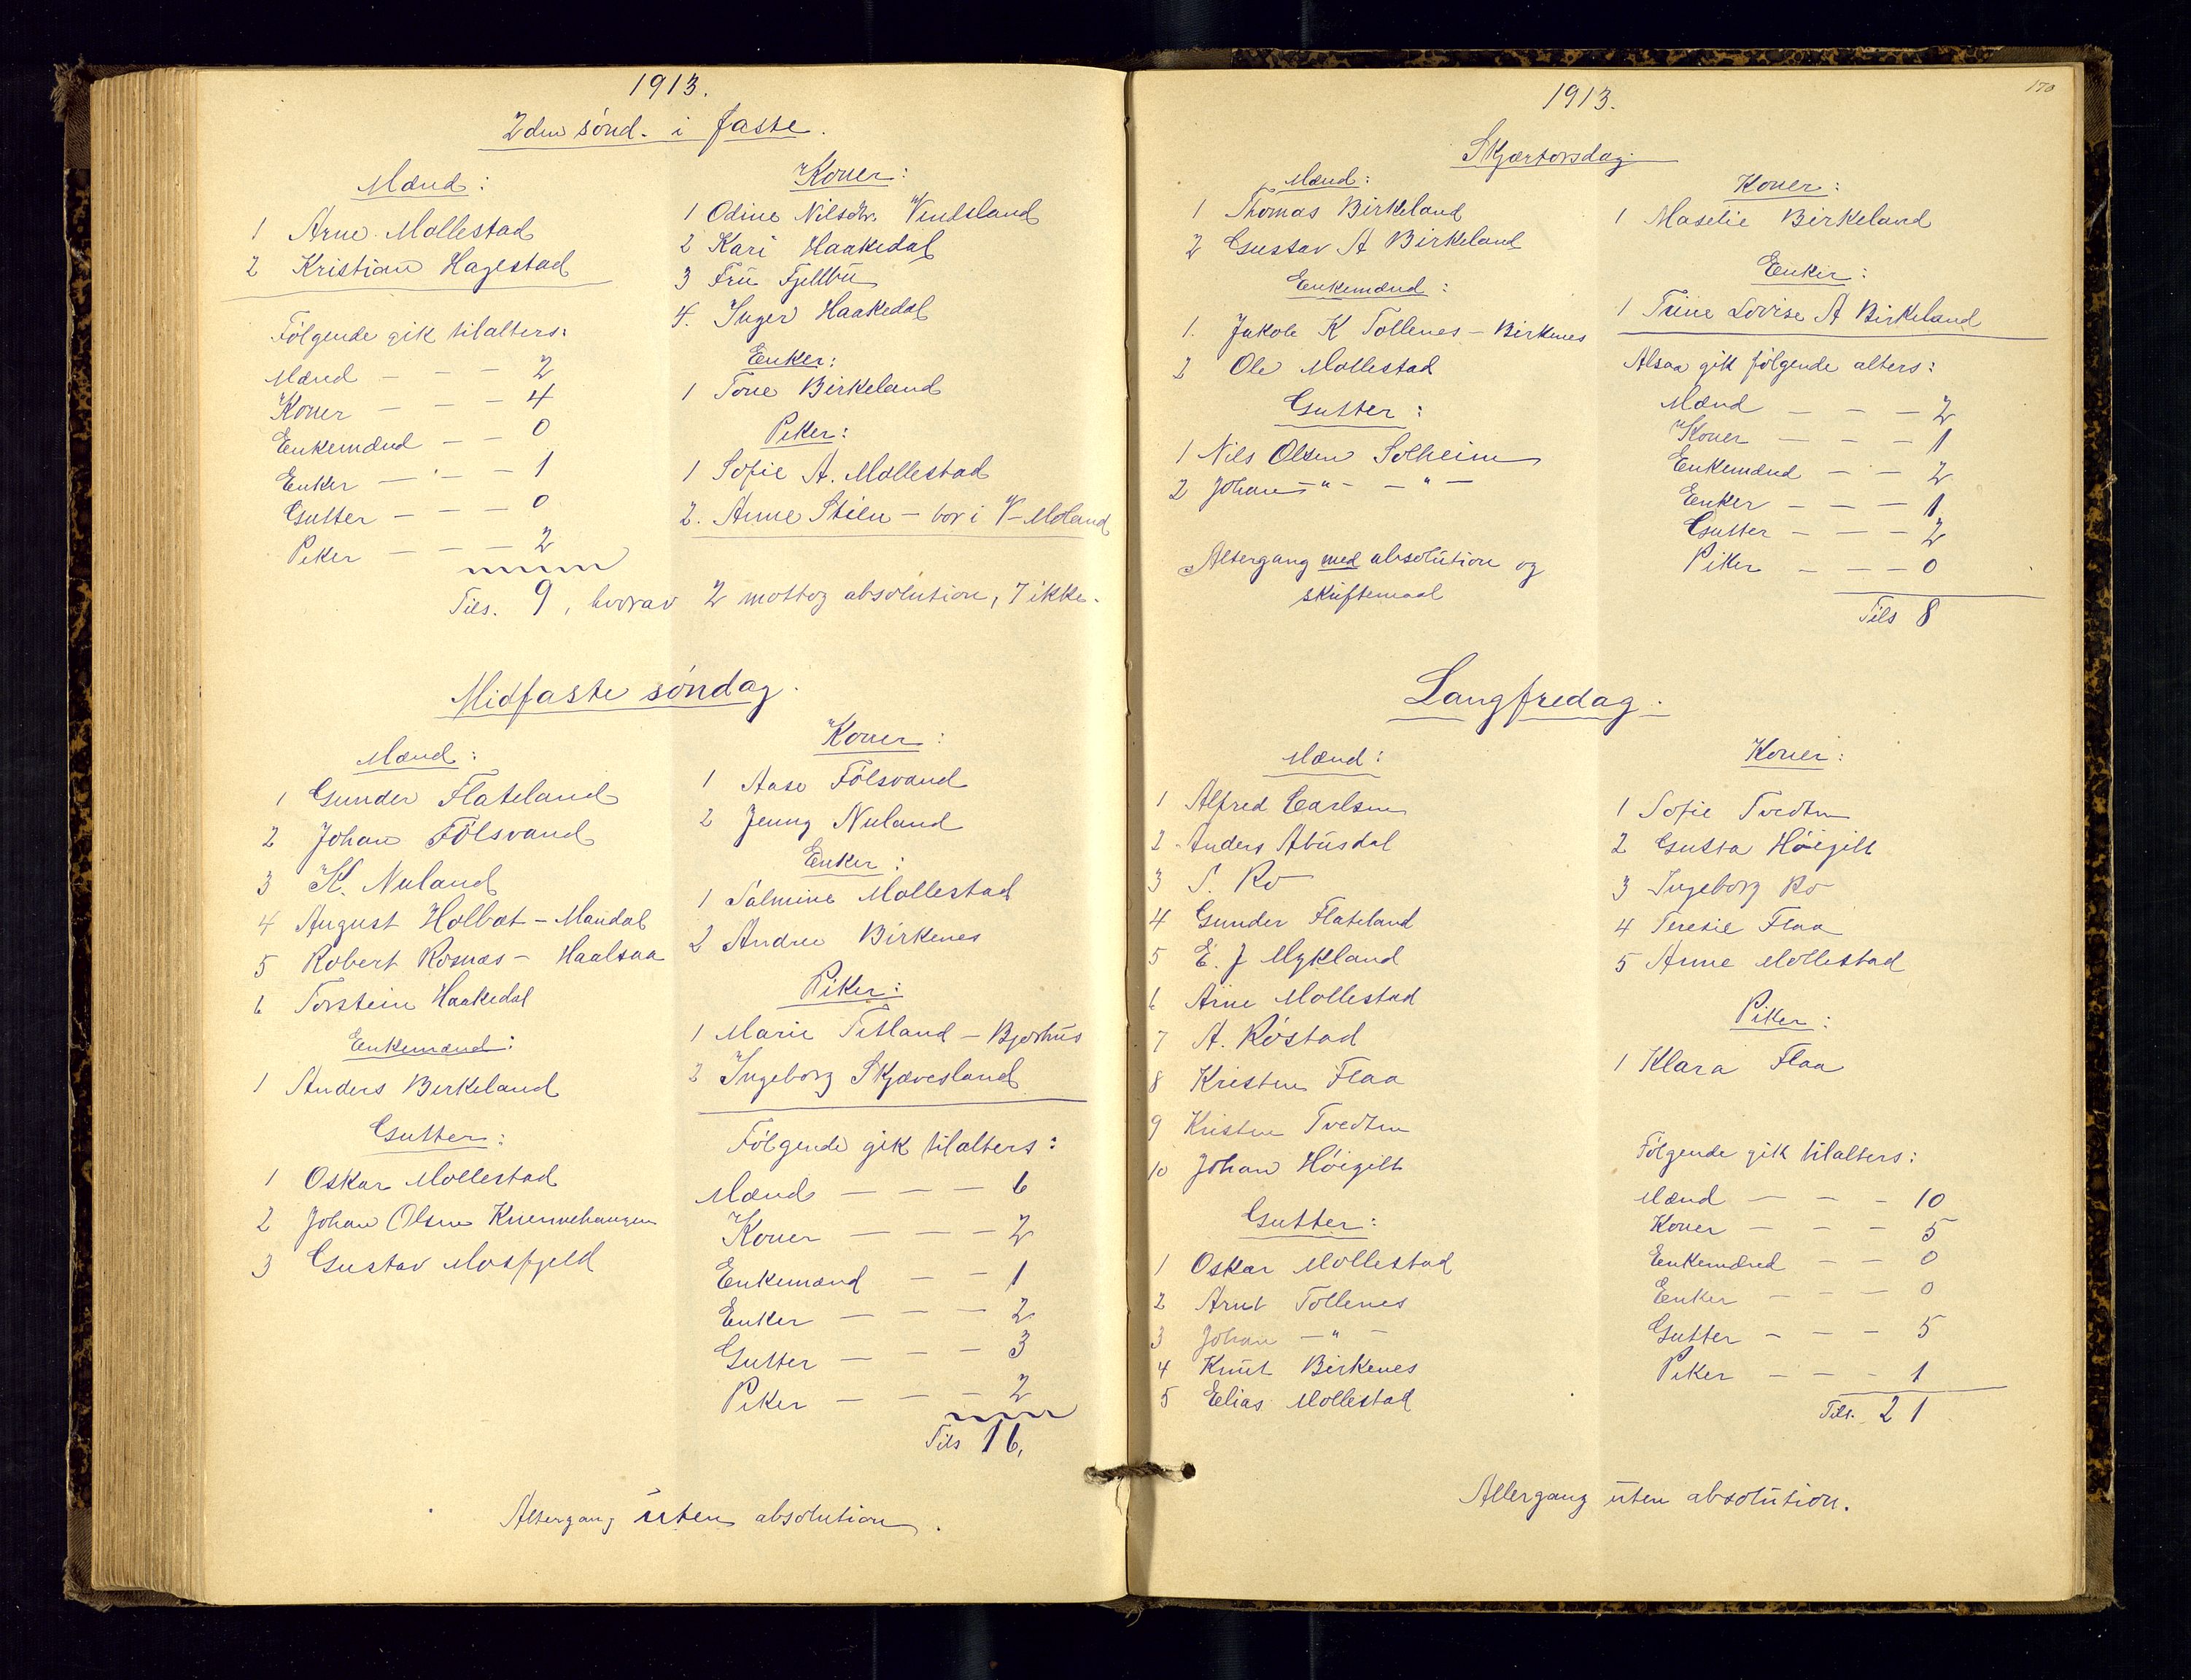 1913.
2den sönd. i faste.
Mænd:
1 Arne Mollestad
2 Kristian Hagestad
Følgende gik tilalters:
Mænd — — — 2
Koner — — — 4
Enkemænd — — 0
Enker — — — 1
Gutter — — — 0
Peker — — — 2
Koner:
1 Odine Nilsdtr. Vindsland
2 Kari Haakedal
3 Fru Fjellbu
4. Inger Haakedal
Enker:
1 Tone Birkeland
Peker:
1 Sofie A. Mollestad
2. Anne Stien — bor i V-Moland
Tils. 9, hvorav 2 mottog absolution, 7 ikke.
Midfaste söndag.
Mænd:
1 Gunder Flateland
2 Johan Fölsvand
3 K. Nuland
4 August Holbæt - Mandal
5 Robert Rosnæs - Haalsaa
6 Torstein Haakedal
Enkemænd:
1 Anders Berkeland
Gutter:
1 Oskar Mollestad
2 Johan Olsen
3 Gustav Mosfjeld
Koner:
1 Aase Fölsvand
2 Jenny Nuland
Enker:
1 Salmine Mollestad
2 Andrea Birkenes
Piker:
1 Marie Tetland - Bjorhus
2 Ingeborg Skjævesland
Følgende gik tilalters:
Mænd — — — 6
Koner — — — 2
Enkemænd — — 1
Enker — — — 2
Gutter — — — 3
Peker — — — 2
Tils 16.
Altergang uten absolution.
170
1913.
Skjærtorsdag
Mænd:
1 Thomas Birkeland
2 Gustav A Birkeland
Enkemænd:
1. Jakob K Tollenes - Birkenes
2 Ole Mollestad
Gutter:
1 Nils Olsen Solheim
2 Johan — " — — " —
Altergang med absolution og
skriftemaal
Koner:
1 Maselie Birkeland
Enker:
1 Trine Lovise A Birkeland
Alsaa gik følgende alters:
Mænd — — — 2
Koner — — — 1
Enkemænd — — 2
Enker — — — 1
Gutter — — — 2
Piker — — — 0
Tils 8
Langfredag.
Mænd:
1 Alfred Carlsen
2 Anders Abusdal
3 S. Ro
4 Gunder Flateland
5 E. J Mykland
6 Arne Mollestad
7 A. Röstad
8 Kristen Flaa
9 Kristen Tvedten
10 Johan Höigilt
Gutter:
1 Oskar Mollestad
2 Arnt Tollenes
3 Johan — " —
4 Knut Birkenes
5 Elias Mollestad
Koner:
1 Sofie Tvedten
2 Gusta Höigilt
3 Ingeborg Ro
4 Teresie Flaa
5 Anne Mollestad
Piker:
1 Klara Flaa
Følgende gik tilalters:
Mænd — — — 10
Koner — — — 5
Enkemænd — — 0
Enker — — — 0
Gutter — — — 5
Peker — — — 1
Tils. 21
Altergang uten absolution.